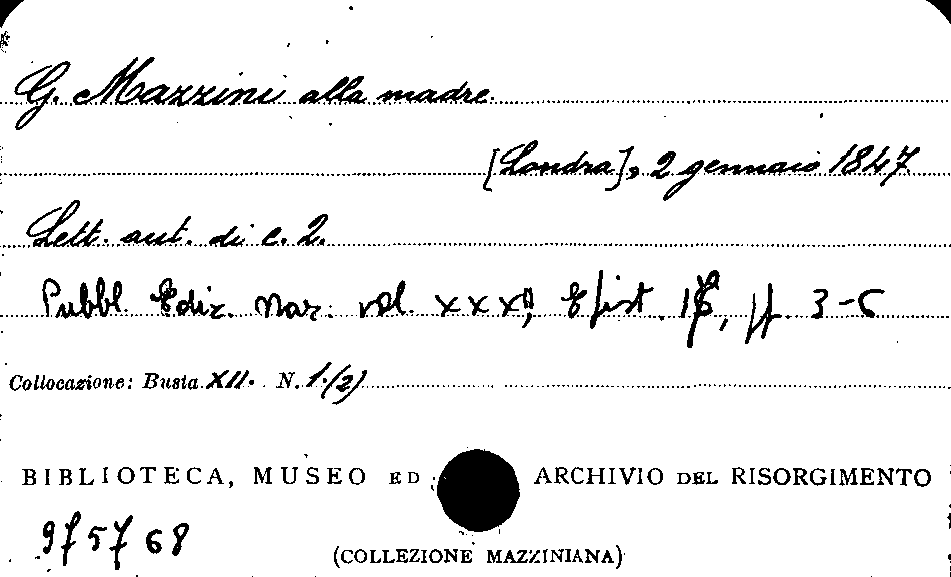 G. Mazzini alla madre.
[Londra], 2 gennaio 1847.
Lett. aut. di c. 2.
Pubbl. Ediz. Naz. vol. XXXI, Epist. pp. 3-6
Collocazione: Busta XII. N. 1.(2)
BIBLIOTECA, MUSEO ED ARCHIVIO DEL RISORGIMENTO
975768
(COLLEZIONE MAZZINIANA)